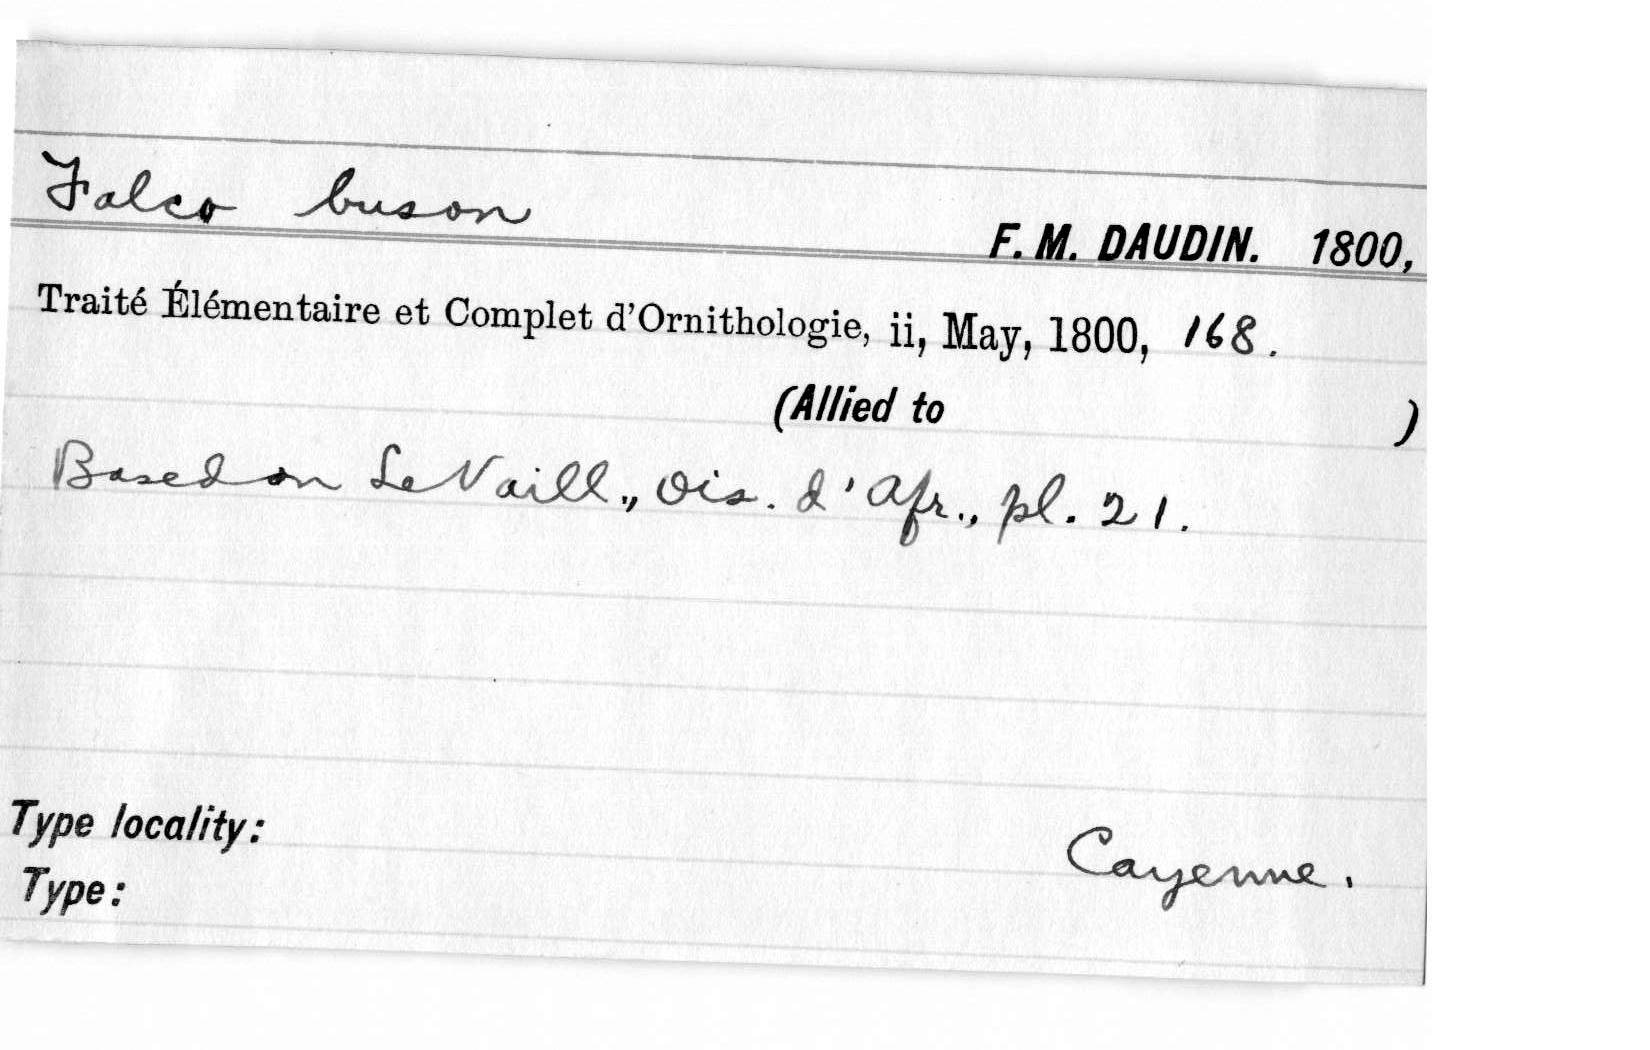 Falco buson
F. M. DAUDIN. 1800,
Traité Élémentaire et Complet d'Ornithologie, ii, May, 1800, 168.
(Allied to )
Based on Le Vaill., Ois. d'Afr., pl. 21.
Type locality: Cayenne.
Type: